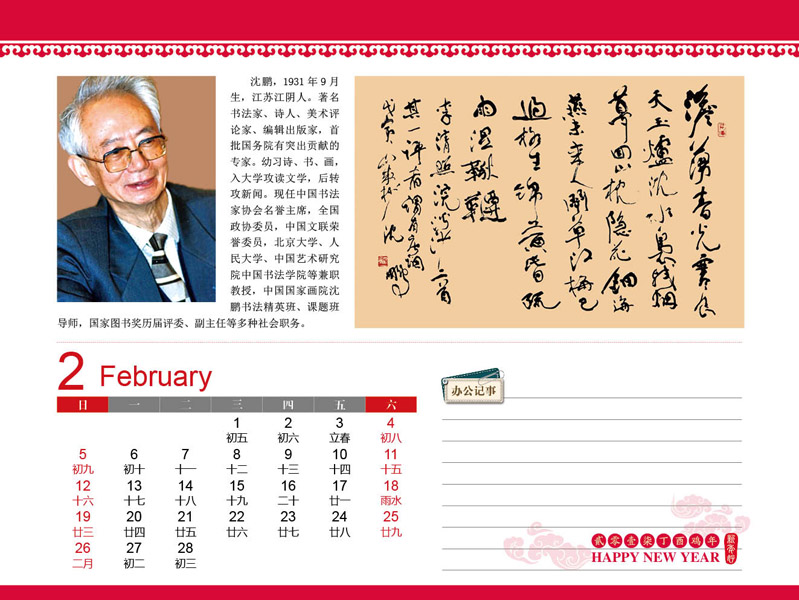 沈鹏，1931 年 9 月
生，江苏江阴人。著名
书法家、诗人、美术评
论家、编辑出版家，首
批国务院有突出贡献的
专家。幼习诗、书、画，
入大学攻读文学，后转
攻新闻。现任中国书法
家协会名誉主席，全国
政协委员，中国文联荣
誉委员，北京大学、人
民大学、中国艺术研究
院中国书法学院等兼职
教授，中国国家画院沈
鹏书法精英班、课题班
导师，国家图书奖历届评委、副主任等多种社会职务。
澹蕩春光寒食
天玉爐沈水裊殘烟
夢回山枕隱花鈿海
燕未來人鬥草江梅已
過柳生綿黃昏疏
雨濕鞦韆
李清照浣溪沙二首
其一評者謂有唐調
戊寅
沈鵬
2 February
日 一 二 三 四 五 六
1 2 3 4
初五 初六 立春 初八
5 6 7 8 9 10 11
初九 初十 十一 十二 十三 十四 十五
12 13 14 15 16 17 18
十六 十七 十八 十九 二十 廿一 雨水
19 20 21 22 23 24 25
廿三 廿四 廿五 廿六 廿七 廿八 廿九
26 27 28
二月 初二 初三
办公记事
贰零壹柒丁酉鸡年
HAPPY NEW YEAR